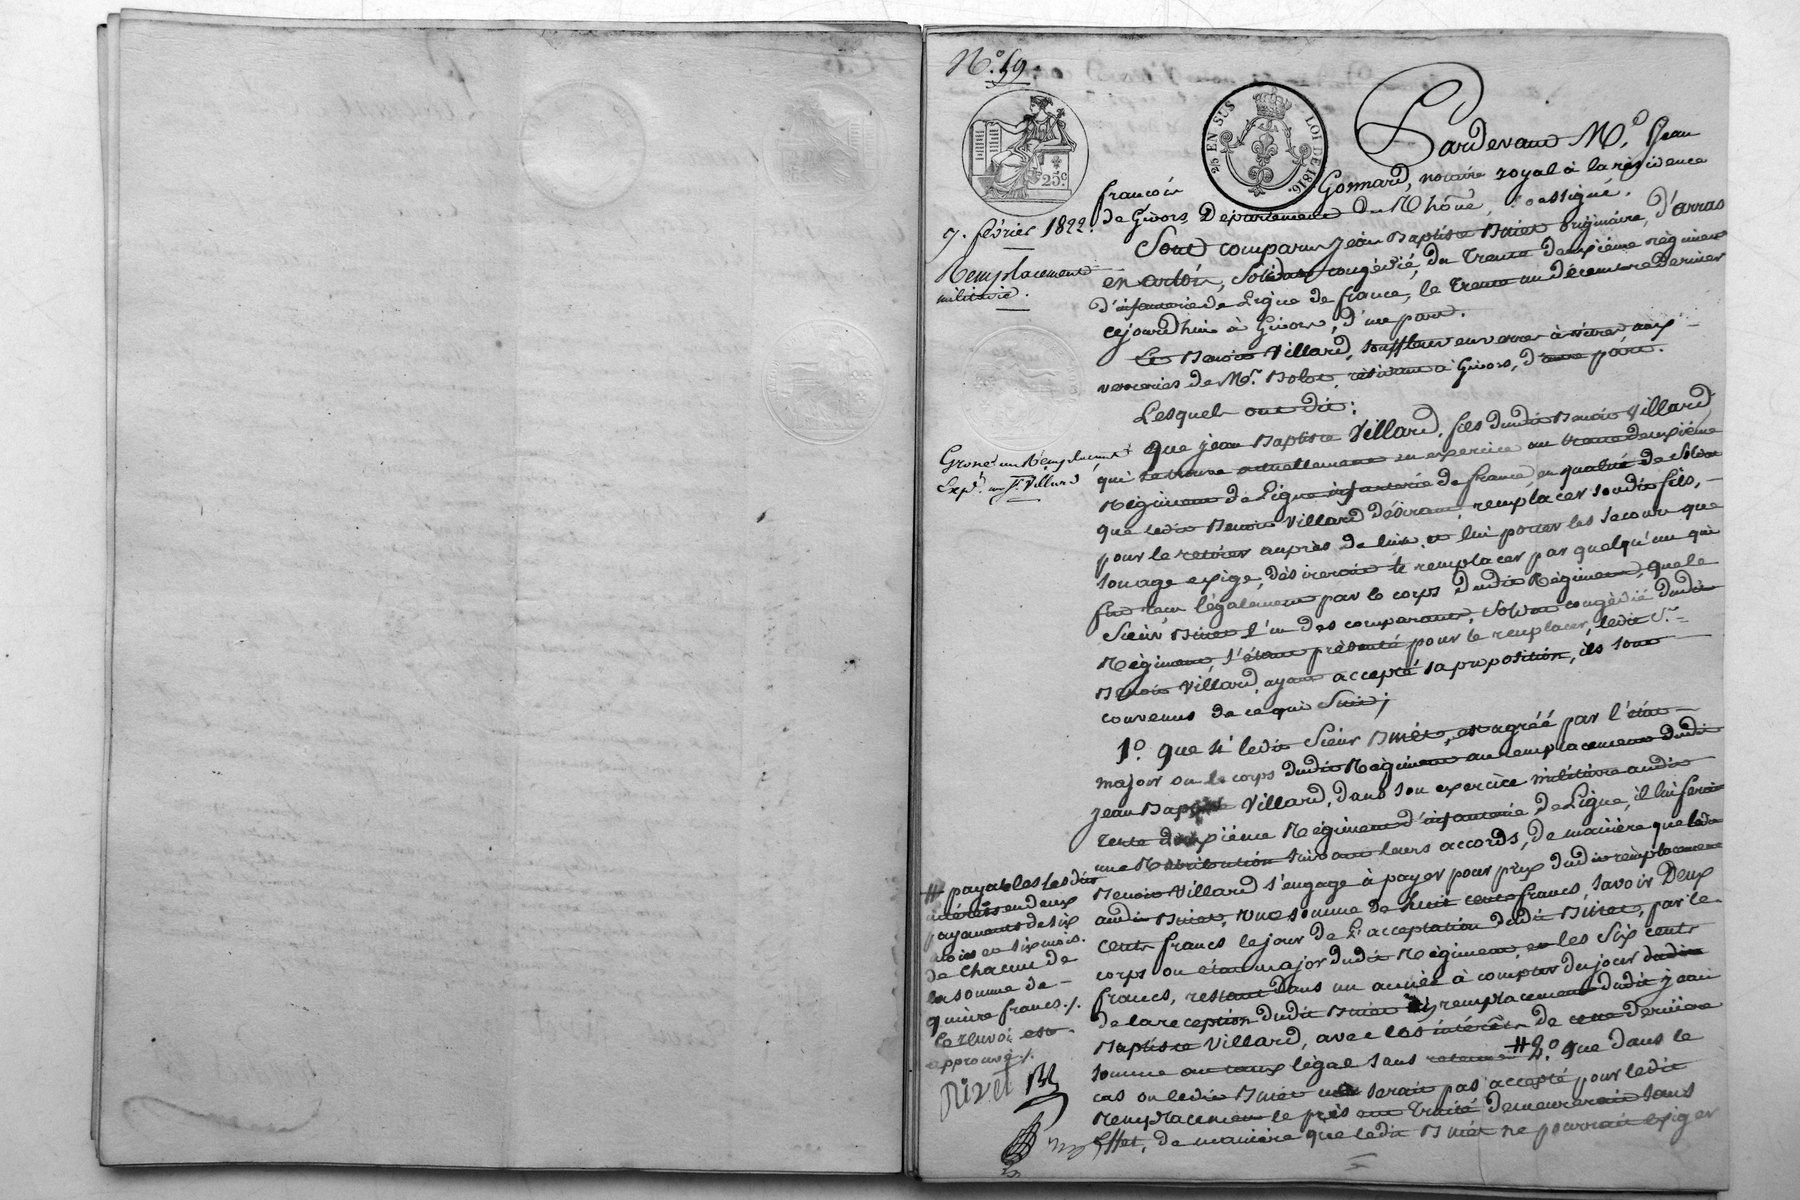 N.° 59.
25 c.
25 EN SUS LOI DE 1816.
7. février 1822.
Remplacement
militaire.
Grosse au Remplacant
Exp.on au S.r Villard
Pardevant M.e Jean
francois Gonnard, notaire royal à la résidence
de Givors, Département du Rhône, soussigné.
Sont comparus jean Baptiste Binet originaire, d'arras
en artois, Soldat congédié, du Trente deuxième régiment
d'infanterie de Ligne de france, le Trente un décembre Dernier
cejourd'hui à Givors, d'une part.
Et Benoit Villard, souffleur en verres à vitres aux
verreries de Mr. Bolot, résidant à Givors, d'autre part.
Lesquels ont dit:
Que jean Baptiste Villard, fils dudit Benoit Villard,
qui se trouve actuellement en exercice au trente deuxième
Régiment de Ligne infanterie de france, en qualité de Soldat
que ledit Benoit Villard désirant remplacer sondit fils,
pour le retirer auprès de lui, et lui porter les secours que
son age exige, désirerait le remplacer par quelqu'un qui
fut reçu légalement par le corps dudit Régiment, que le
Sieur Binet l'un des comparants, Soldat congédié dudit
Régiment, s'étant présenté pour le remplacer, ledit S.r
Benoit Villard, ayant accepté sa proposition, ils sont
convenus de ce qui Suit;
1.° que si ledit Sieur Binet, est agréé par l'état
major ou le corps dudit Régiment au remplacement dudit
jean Baptiste Villard, dans son exercice militaire audit
trente deuxième Régiment d'infanterie de Ligne, il lui serait
une Rétribution suivant leurs accords, de manière que ledit
Benoit Villard s'engage à payer pour prix dudit remplacement
audit Binet, une somme de huit cents francs, savoir Deux
cents francs le jour de l'acceptation dudit Binet, par le
corps ou état major dudit Régiment, et les Six cents
francs, restant dans un année à compter du jour
de la reception dudit Binet en remplacement dudit jean
Baptiste Villard, avec les intérêts de cette dernière
somme au taux légal sans retenue # 2.° que dans le
cas ou ledit Binet ne serait pas accepté pour ledit
Remplacement le présent Traité demeurerait sans
Effet, de manière que ledit Binet ne pourrait exiger
# payables lesdits
intérêts en deux
payements de six
mois en six mois.
de chacun de
la somme de
quinze francs ./.
Ce renvoi est
approuvé ./.